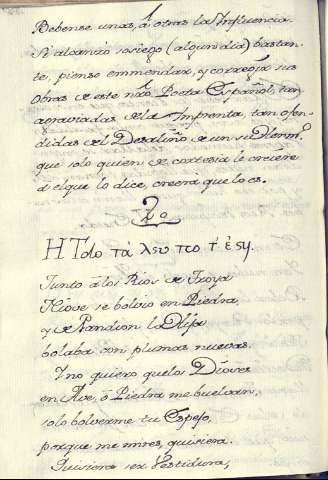 Debense unas, â otras la Influencia.
Si alcanzo sosiego (algun dia) bastan-
te, pienso emmendar, y corregir sus
obras de este nro Poeta Español, tan
agraviadas de la Imprenta, tan ofen-
didas del Desaliño de un su
que solo quien de cortesia le creiere
â el que lo dice, creerá que lo es.
2o
Η Τ
Junto â los Rios de Troya
Niove se bolvio en Piedra
y de Pandion la Hija
bolaba con plumas nuevas.
Yno quiero que los Dioses
en Ave, ô Piedra me buelvan,
solo bolverme tu Espejo,
porque me mires, quisiera.
Quisiera ser Vestidura,